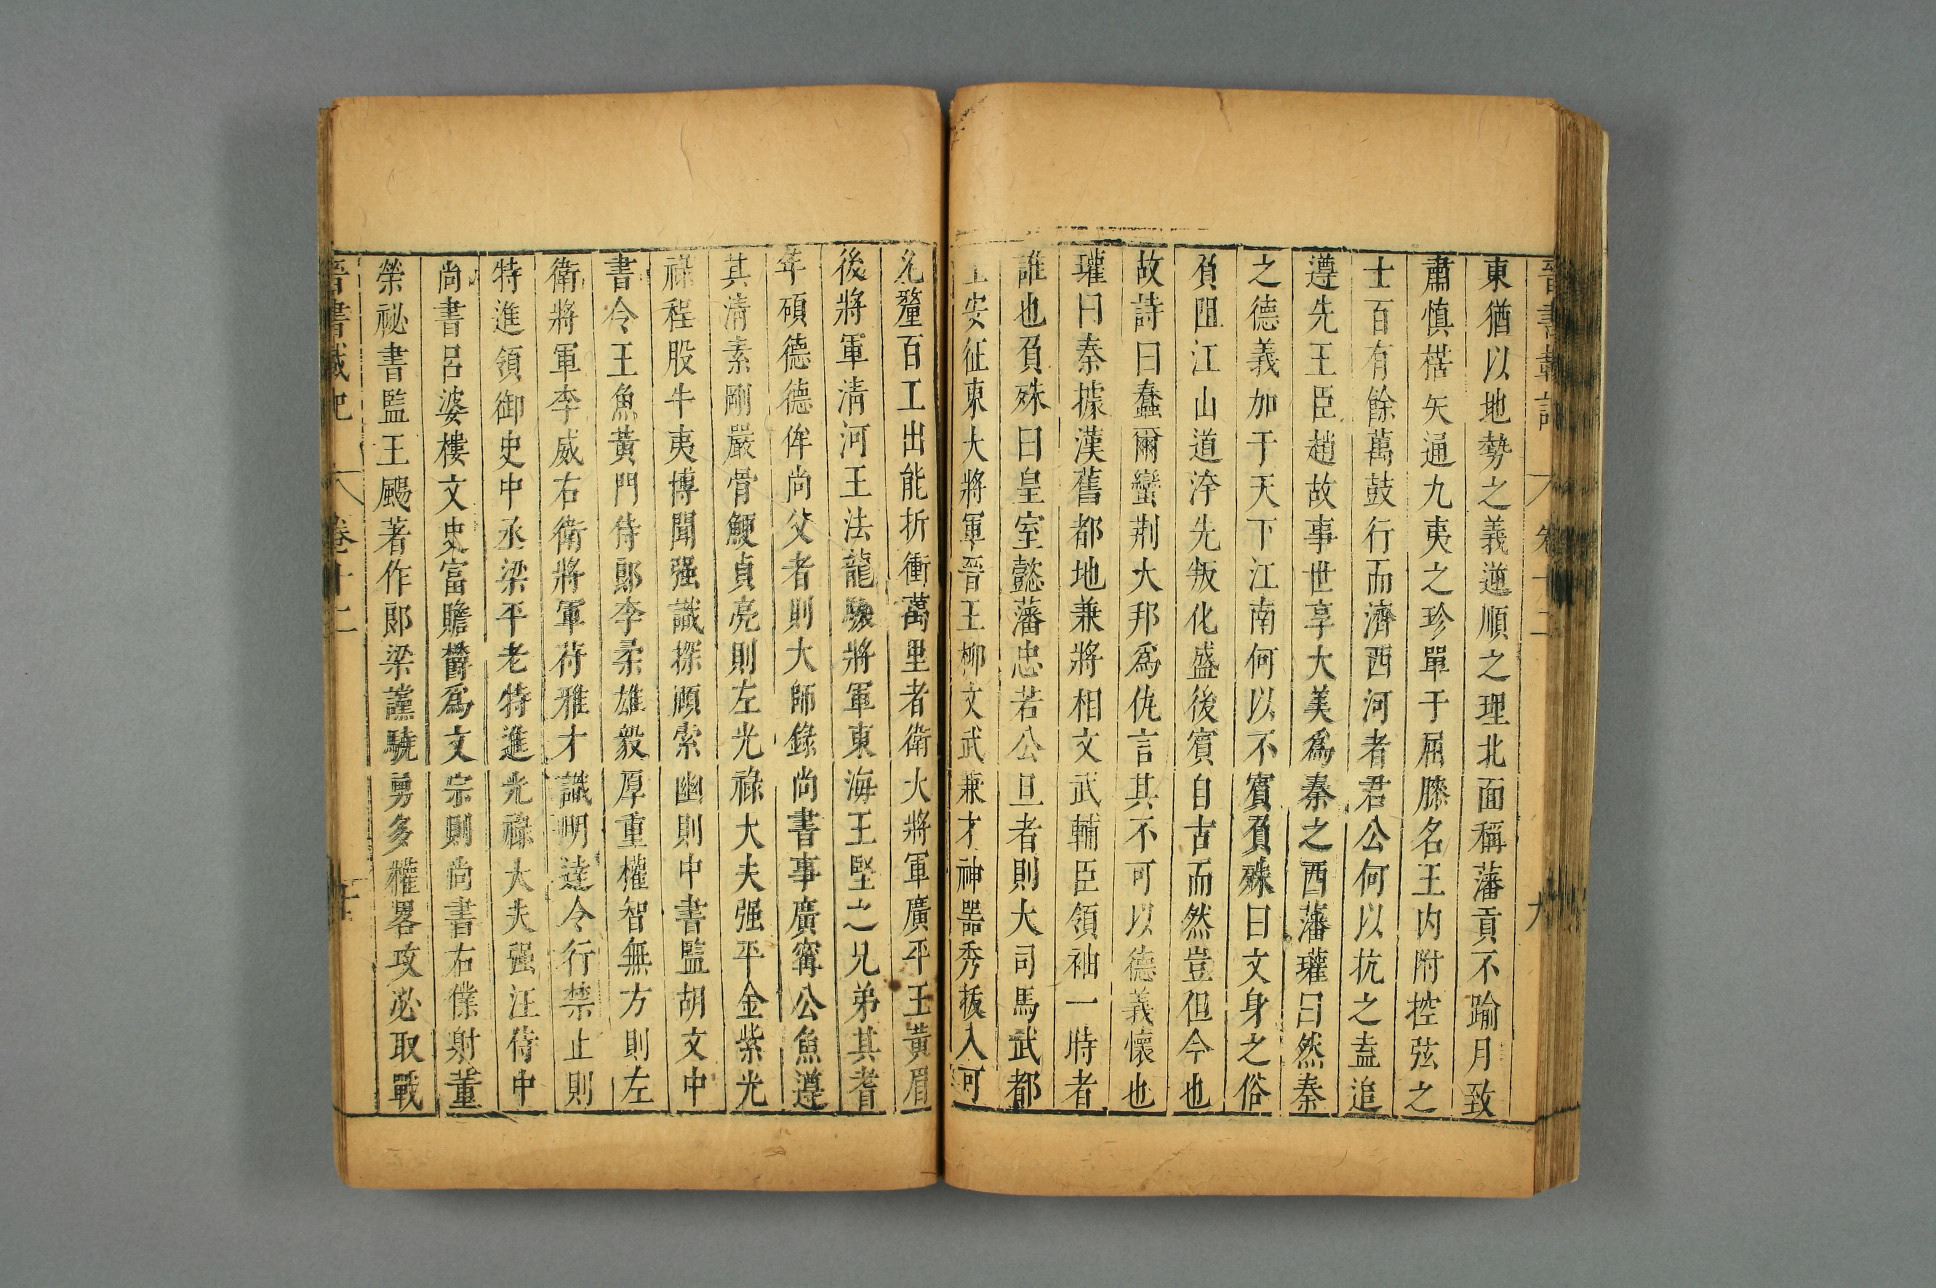 晉書載記 卷十二 九
東猶以地勢之義逆順之理北面稱藩貢不踰月致
肅慎楛矢通九夷之珍單于屈膝名王内附控弦之
士百有餘萬鼓行而濟西河者君公何以抗之盍追
遵先王臣趙故事世享大美爲秦之西藩瓘曰然秦
之德義加于天下江南何以不賓負殊曰文身之俗
負阻江山道洿先叛化盛後賓自古而然豈但今也
故詩曰蠢爾蠻荆大邦爲仇言其不可以德義懷也
瓘曰秦據漢舊都地兼將相文武輔臣領袖一時者
誰也負殊曰皇室懿藩忠若公旦者則大司馬武都
王安征東大將軍晉王柳文武兼才神器秀拔入可
允釐百工出能折衝萬里者衛大將軍廣平王黃眉
後將軍清河王法龍驤將軍東海王堅之兄弟其耆
年碩德德侔尚父者則大師錄尚書事廣寧公魚遵
其清素剛嚴骨鯁貞亮則左光祿大夫强平金紫光
祿程肱牛夷博聞强識探賾索幽則中書監胡文中
書令王魚黃門侍郎李柔雄毅厚重權智無方則左
衛將軍李威右衛將軍苻雅才識明達令行禁止則
特進領御史中丞梁平老特進光祿大夫强汪侍中
尚書呂婆樓文史富贍鬱爲文宗則尚書右僕射董
榮祕書監王颺著作郎梁讜驍勇多權畧攻必取戰
晉書載記 卷十二